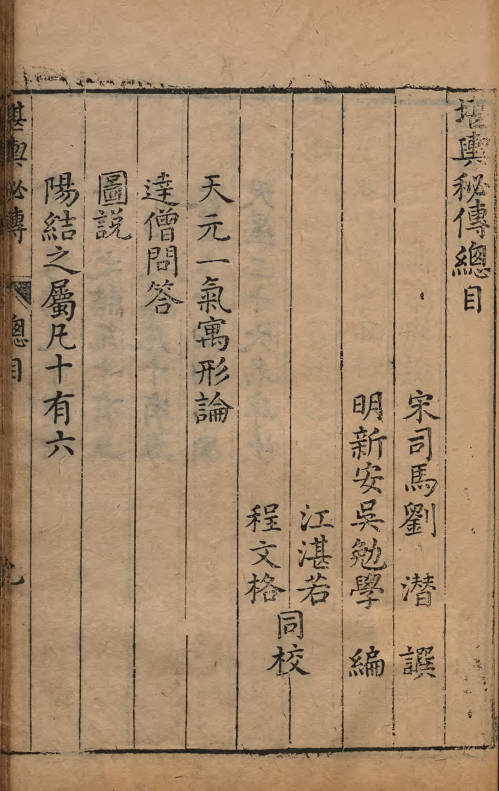 堪輿秘傳總目
宋司馬劉 潛 譔
明新安吳勉學 編
江湛若
程文格
同校
天元一氣寓形論
達僧問答
圖説
陽結之屬凡十有六
堪輿秘傳 總目